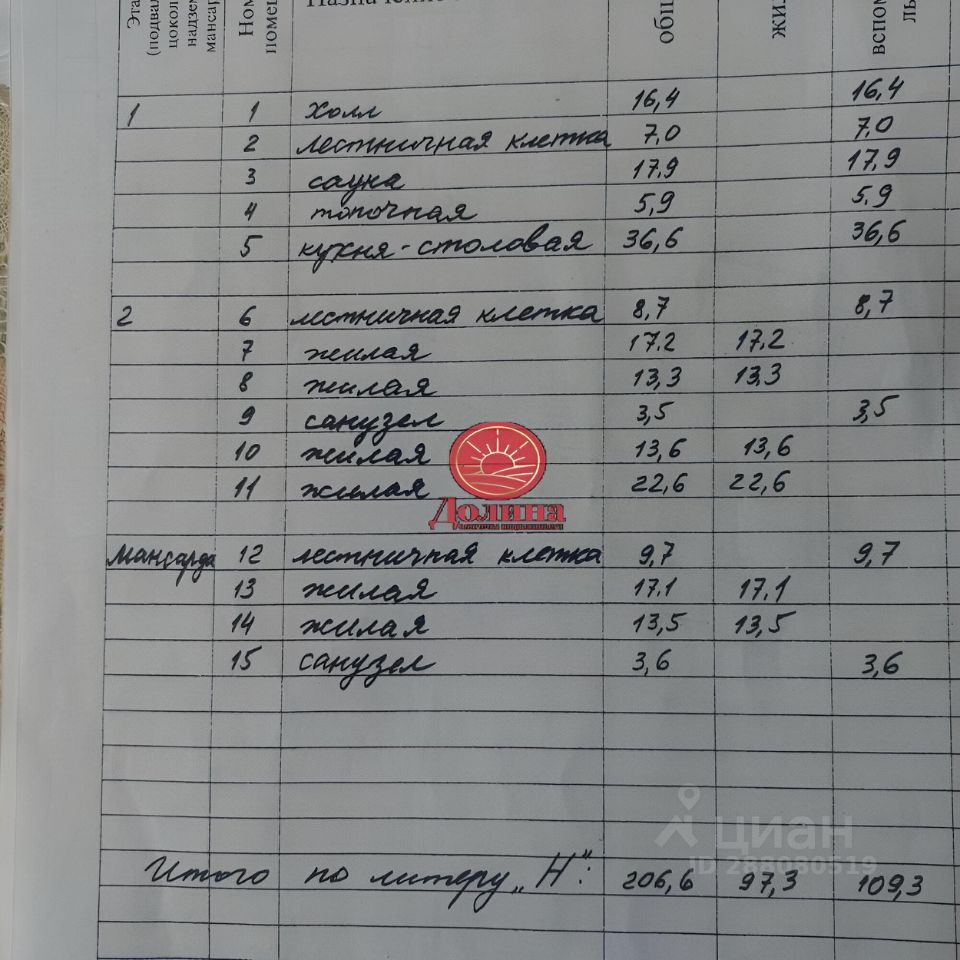 Эта
(подвал
цоколь
надзем
мансар
Ном
помещ
общ
жи
вспом
ль
1 1 Холл 16,4 16,4
2 лестничная клетка 7,0 7,0
3 сауна 17,9 17,9
4 топочная 5,9 5,9
5 кухня-столовая 36,6 36,6
2 6 лестничная клетка 8,7 8,7
7 жилая 17,2 17,2
8 жилая 13,3 13,3
9 санузел 3,5 3,5
10 жилая 13,6 13,6
11 жилая 22,6 22,6
Долина
мансарда 12 лестничная клетка 9,7 9,7
13 жилая 17,1 17,1
14 жилая 13,5 13,5
15 санузел 3,6 3,6
циан
ID 288080519
Итого по литеру „Н": 206,6 97,3 109,3